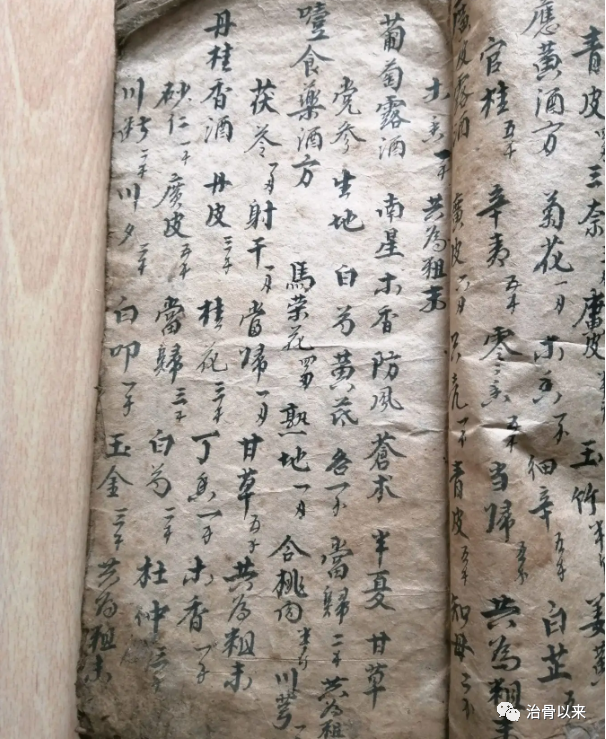 青皮 三奈 廣皮 玉竹 姜
應黃酒方 菊花一两 木香一钱 細辛五钱 白芷五
官桂五钱 辛夷五钱 零香五钱 当歸五钱 共為粗末
廣皮露酒 廣皮 青皮五钱 知母三钱
土香一钱 共為粗末
葡萄露酒 南星 木香 防風 蒼朮 半夏 甘草
党参 生地 白芍 黃芪各一钱 當歸二钱 共為粗
噎食藥酒方 馬菜花四两 熟地一两 合桃肉半斤 川芎一
茯苓一两 射干一两 當歸一两 甘草五钱 共為粗末
丹桂香酒 丹皮三钱 桂花三钱 丁香一钱 木香一钱
砂仁一钱 廣皮五钱 當歸三钱 白芍二钱 杜仲三钱
川断二钱 川夕二钱 白叩一钱 玉金三钱 共為粗末
治骨以来